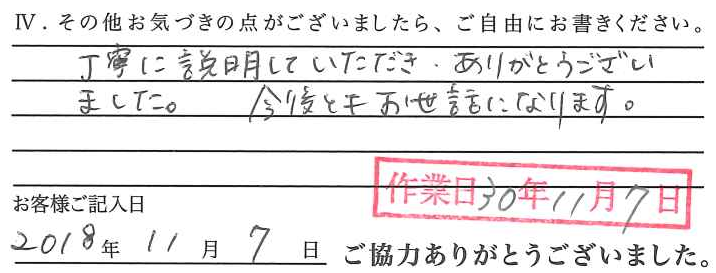 Ⅳ．その他お気づきの点がございましたら、ご自由にお書きください。
丁寧に説明していただき、ありがとうござい
ました。 今後ともお世話になります。
作業日30年11月7日
お客様ご記入日
2018年 11月 7日 ご協力ありがとうございました。